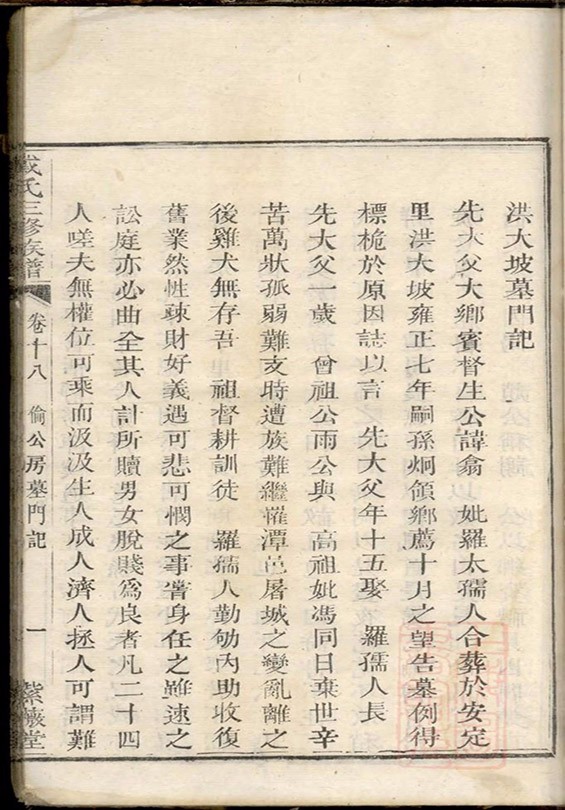 洪大坡墓門記
先大父大鄉賓督生公諱翕 妣羅太孺人合葬於安定
里洪大坡雍正七年嗣孫炯領鄉薦十月之望告墓例得
標桅於原因誌以言 先大父年十五娶 羅孺人長
先大父一歲 曾祖公雨公與 高祖妣馮同日棄世辛
苦萬狀孤弱難支時遭族難繼罹潭邑屠城之變亂離之
後雞犬無存吾 祖督耕訓徒 羅孺人勤劬內助收復
舊業然性疎財好義遇可悲可憫之事嘗身任之雖速之
訟庭亦必曲全其人計所贖男女脫賤爲良者凡二十四
人嗟夫無權位可乘而汲汲生人成人濟人拯人可謂難
氏三修族譜 卷十八 倫公房墓門記 一 紫 堂